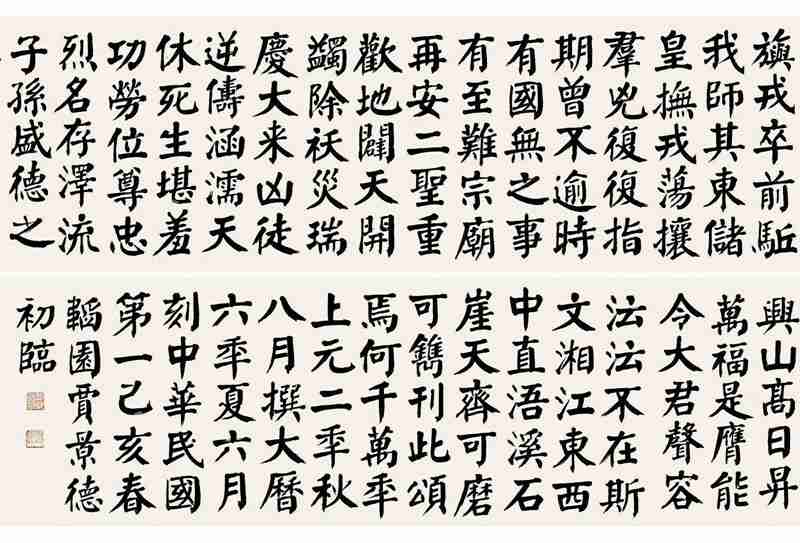 旟戎卒前駈
我師其東儲
皇撫戎蕩攘
羣兇復復指
期曾不逾時
有國無之事
有至難宗廟
再安二聖重
歡地闢天開
蠲除祅災瑞
慶大来凶徒
逆儔涵濡天
休死生堪羞
功勞位尊忠
烈名存澤流
子孫盛德之
興山髙日昇
萬福是膺能
令大君聲容
沄沄不在斯
文湘江東西
中直浯溪石
崖天齊可磨
可鐫刊此頌
焉何千萬年
上元二年秋
八月撰大曆
六年夏六月
刻中華民國
第一己亥春
韜園賈景德
初臨